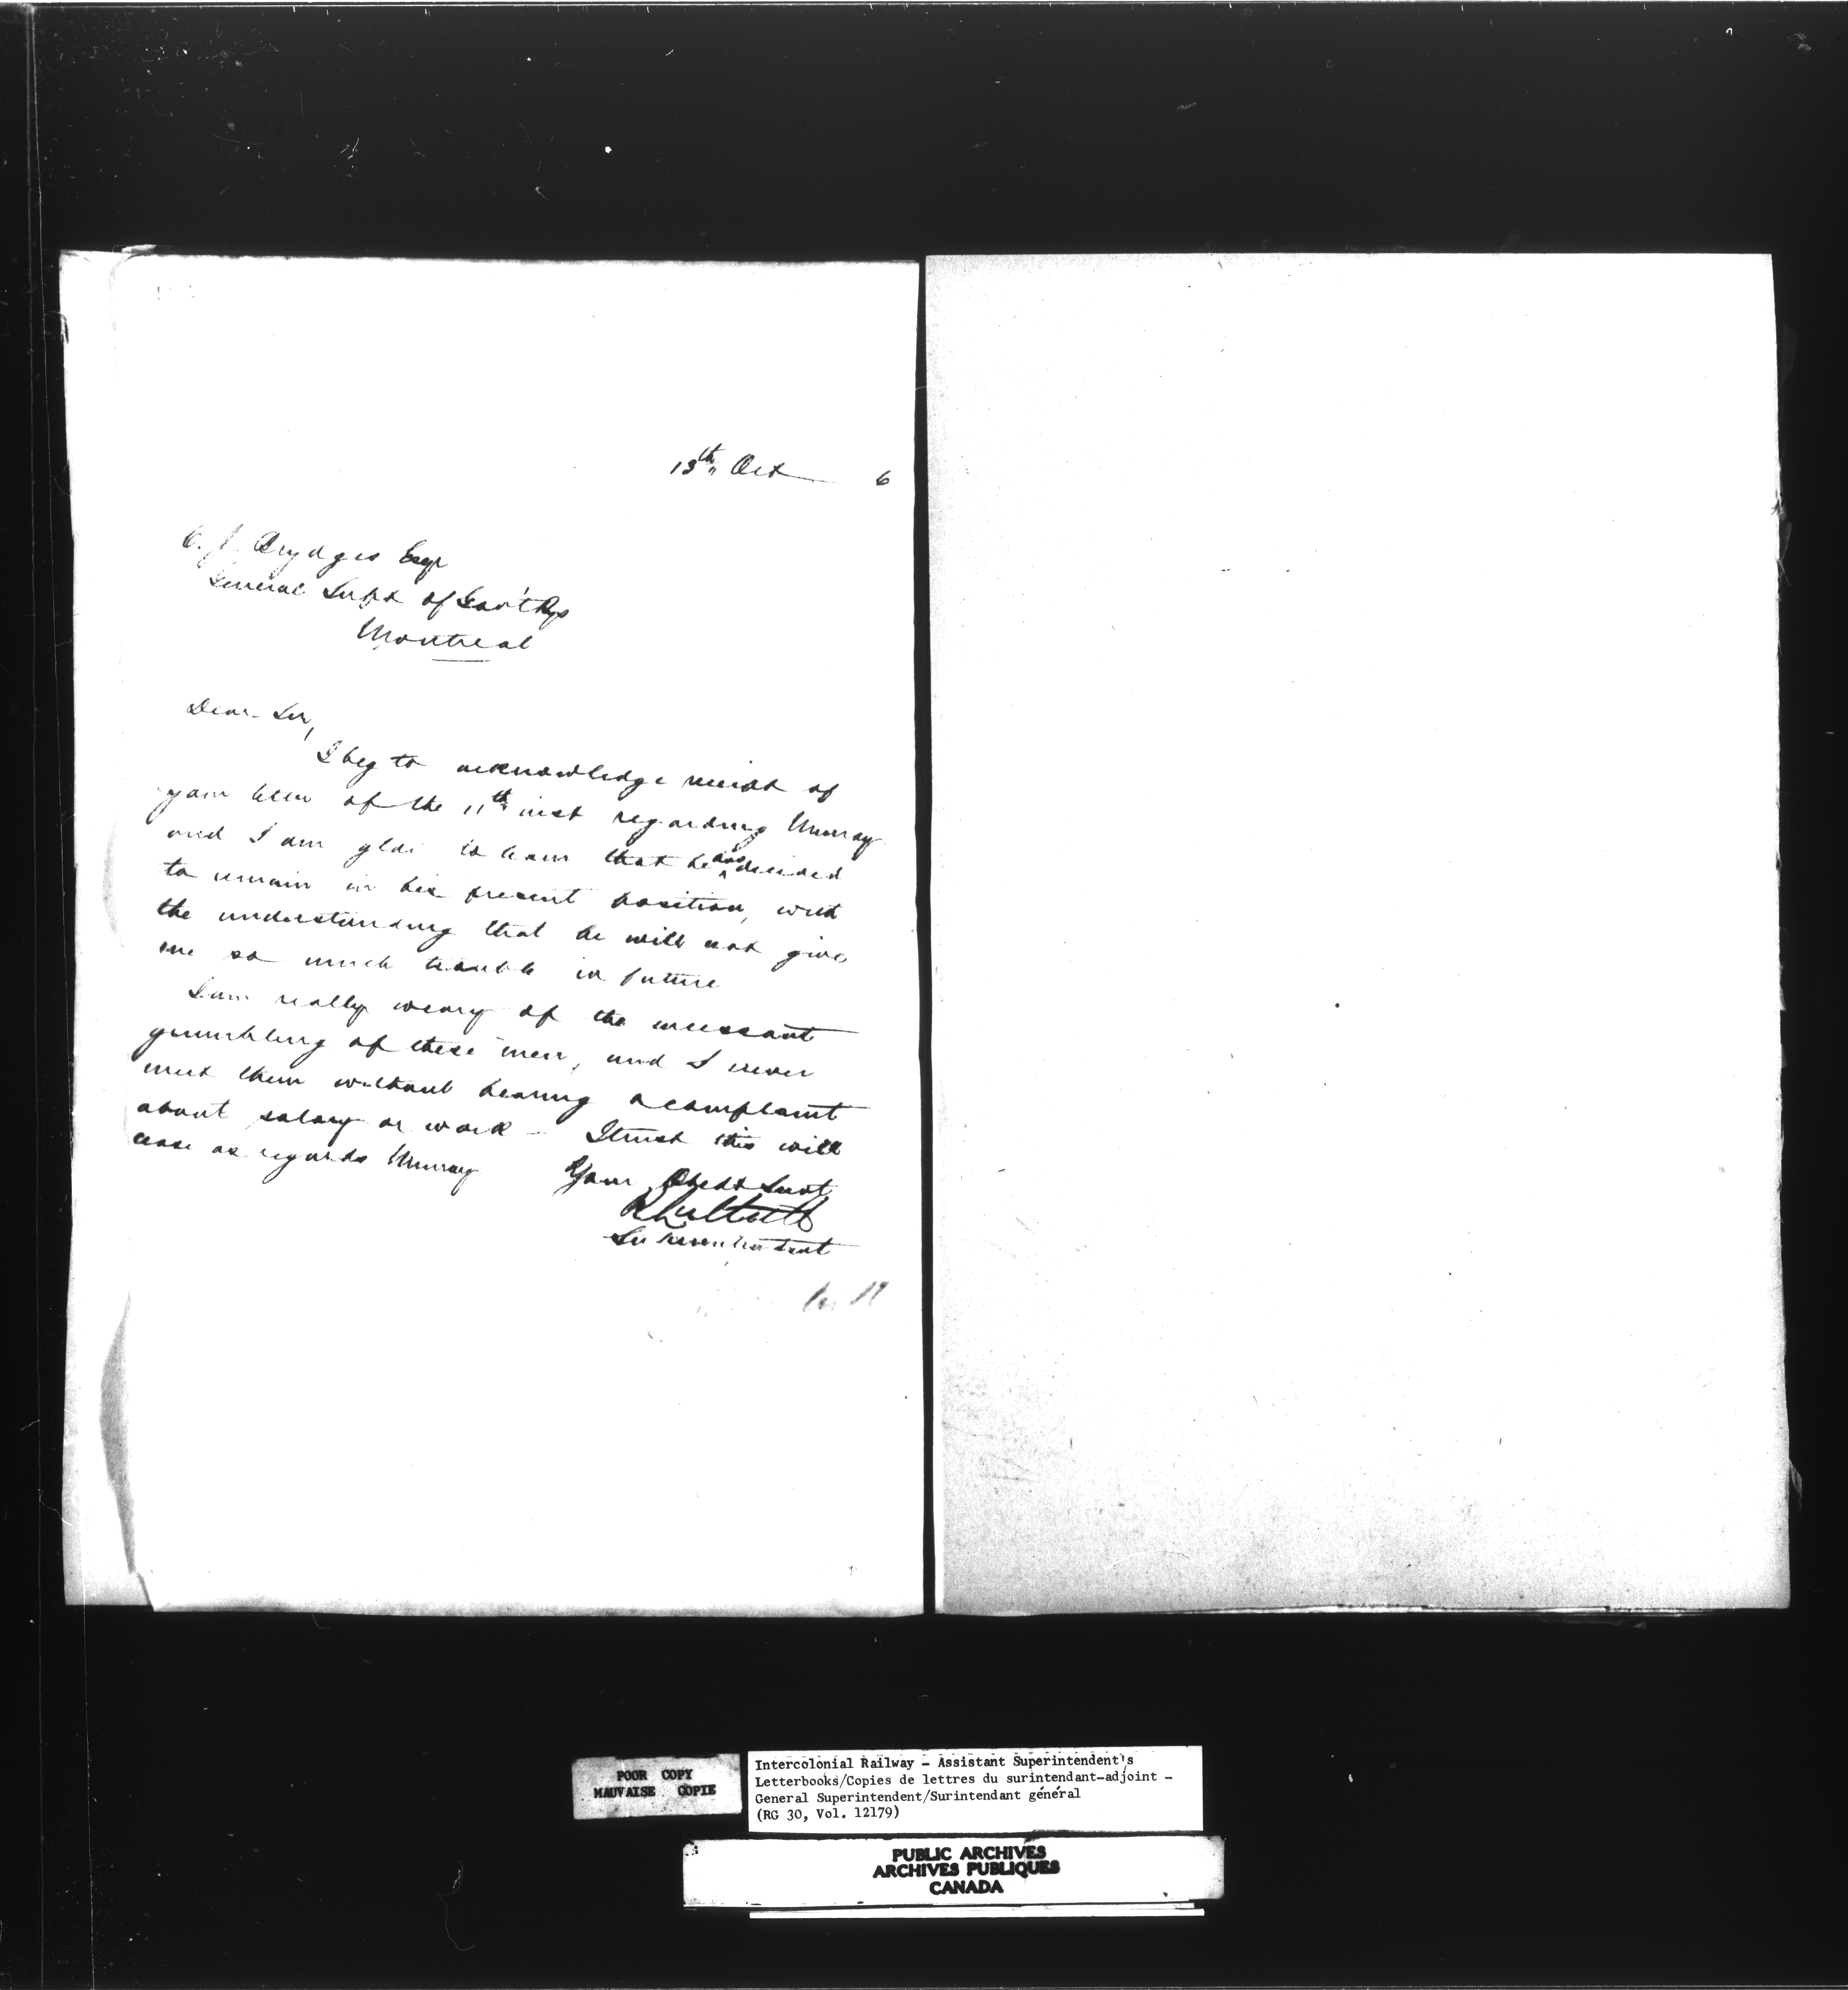 13th Oct 6
C. J. Brydges Esqr
General Supt of Gov't Rys
Montreal
Dear Sir,
I beg to acknowledge receipt of
your letter of the 11th inst regarding Murray
and I am glad to learn that he has decided
to remain in his present position, with
the understanding that he will not give
me so much trouble in future
I am really weary of the incessant
grumbling of these men, and I never
meet them without hearing a complaint
about salary or work - I trust this will
cease as regards Murray
Your Obedt Servt
Superintendent
POOR COPY
MAUVAISE COPIE
Intercolonial Railway - Assistant Superintendent's
Letterbooks/Copies de lettres du surintendant-adjoint -
General Superintendent/Surintendant général
(RG 30, Vol. 12179)
PUBLIC ARCHIVES
ARCHIVES PUBLIQUES
CANADA